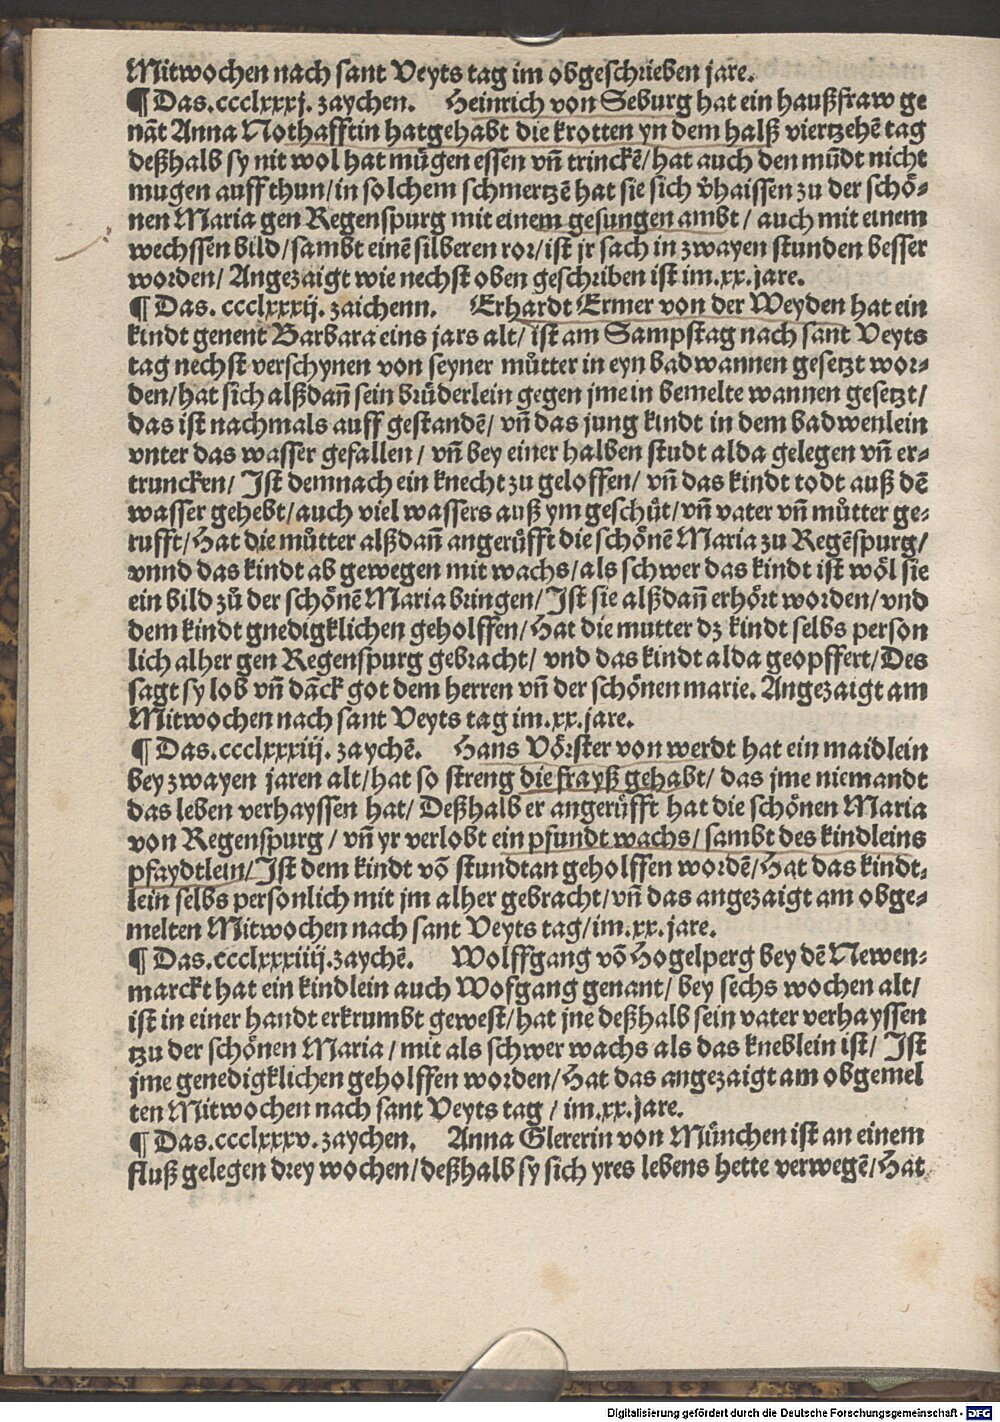 Mitwochen nach sant Veyts tag im obgeschrieben jare.
¶ Das. ccclxxxj. zaychen. Heinrich von Seburg hat ein haußfraw ge
nãt Anna Nothafftin hatgehabt die krotten yn dem halß viertzehẽ tag
deßhalb sy nit wol hat mügen essen vñ trinckẽ/ hat auch den mũdt nicht
mugen auff thun/ in solchem schmertzẽ hat sie sich v̉haissen zu der schö⸗
nen Maria gen Regenspurg mit einem gesungen ambt/ auch mit einem
wechssen bild/ sambt einẽ silberen ror/ ist jr sach in zwayen stunden besser
worden/ Angezaigt wie nechst oben geschriben ist im.xx.jare.
¶ Das. ccclxxxij. zaichenn. Erhardt Ermer von der Weyden hat ein
kindt genent Barbara eins jars alt/ ist am Sampstag nach sant Veyts
tag nechst verschynen von seyner můtter in eyn badwannen gesetzt wor⸗
den/ hat sich alßdañ sein brüderlein gegen jme in bemelte wannen gesetzt/
das ist nachmals auff gestandẽ/ vñ das jung kindt in dem badwenlein
vnter das wasser gefallen/ vñ bey einer halben studt alda gelegen vñ er⸗
truncken/ Ist demnach ein knecht zu geloffen/ vñ das kindt todt auß dẽ
wasser gehebt/ auch viel wassers auß ym geschüt/ vñ vater vñ můtter ge⸗
rufft/ Hat die můtter alßdañ angerüfft die schönẽ Maria zu Regẽspurg/
vnnd das kindt ab gewegen mit wachs/ als schwer das kindt ist wöl sie
ein bild zů der schönẽ Maria bringen/ Ist sie alßdañ erhört worden/ vnd
dem kindt gnedigklichen geholffen/ Hat die mutter dz kindt selbs person
lich alher gen Regenspurg gebracht/ vnd das kindt alda geopffert/ Des
sagt sy lob vñ dãck got dem herren vñ der schönen marie. Angezaigt am
Mitwochen nach sant Veyts tag im.xx.jare.
¶ Das.ccclxxxiij. zaychẽ. Hans Vörster von werdt hat ein maidlein
bey zwayen jaren alt/ hat so streng die frayß gehabt/ das jme niemandt
das leben verhayssen hat/ Deßhalb er angerüfft hat die schönen Maria
von Regenspurg/ vñ yr verlobt ein pfundt wachs/ sambt des kindleins
pfaydtlein/ Ist dem kindt võ stundtan geholffen wordẽ/ Hat das kindt⸗
lein selbs personlich mit jm alher gebracht/ vñ das angezaigt am obge⸗
melten Mitwochen nach sant Veyts tag/ im.xx.jare.
¶ Das.ccclxxxiiij.zaychẽ. Wolffgang võ Hogelperg bey dẽ Newen⸗
marckt hat ein kindlein auch Wofgang genant/ bey sechs wochen alt/
ist in einer handt erkrumbt gewest/ hat jne deßhalb sein vater verhayssen
tzu der schönen Maria/ mit als schwer wachs als das kneblein ist/ Ist
jme genedigklichen geholffen worden/ Hat das angezaigt am obgemel
ten Mitwochen nach sant Veyts tag/ im.xx.jare.
¶ Das.ccclxxxv.zaychen. Anna Glererin von München ist an einem
fluß gelegen drey wochen/ deßhalb sy sich yres lebens hette verwegẽ/ Hat
Digitalisierung gefördert durch die Deutsche Forschungsgemeinschaft - DFG